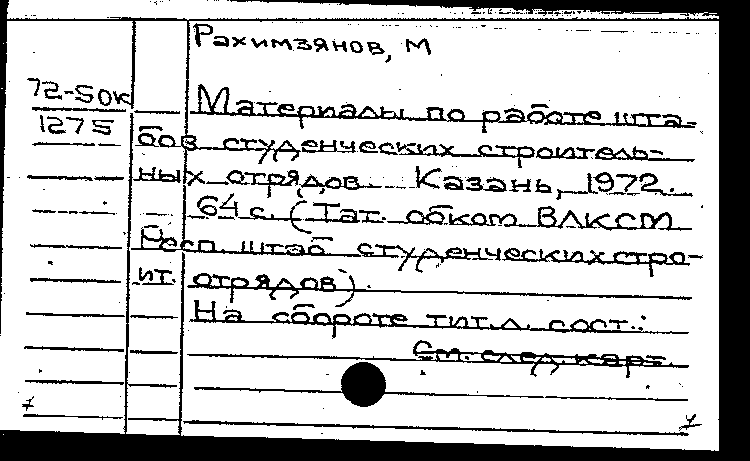 Рахимзянов, М
72-50к
1275
Материалы по работе шта-
бов студенческих строитель-
ных отрядов. Казань, 1972.
64 с. (Тат. обком ВЛКСМ
Респ. штаб студенческих стро-
ит. отрядов).
На обороте тит. л. сост.:
См. след. карт.